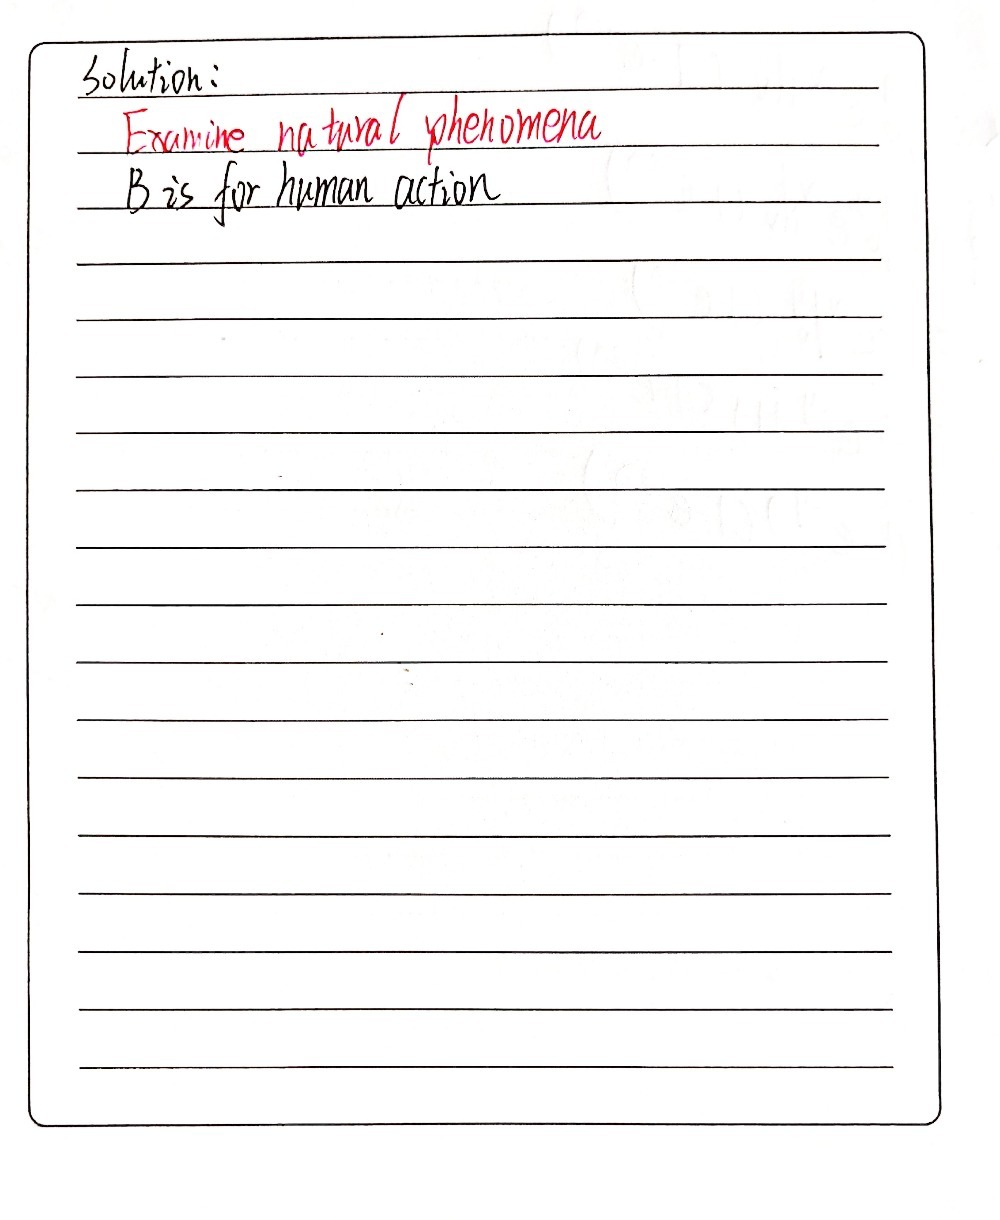 Solution:
Examine natural phenomena
B is for human action